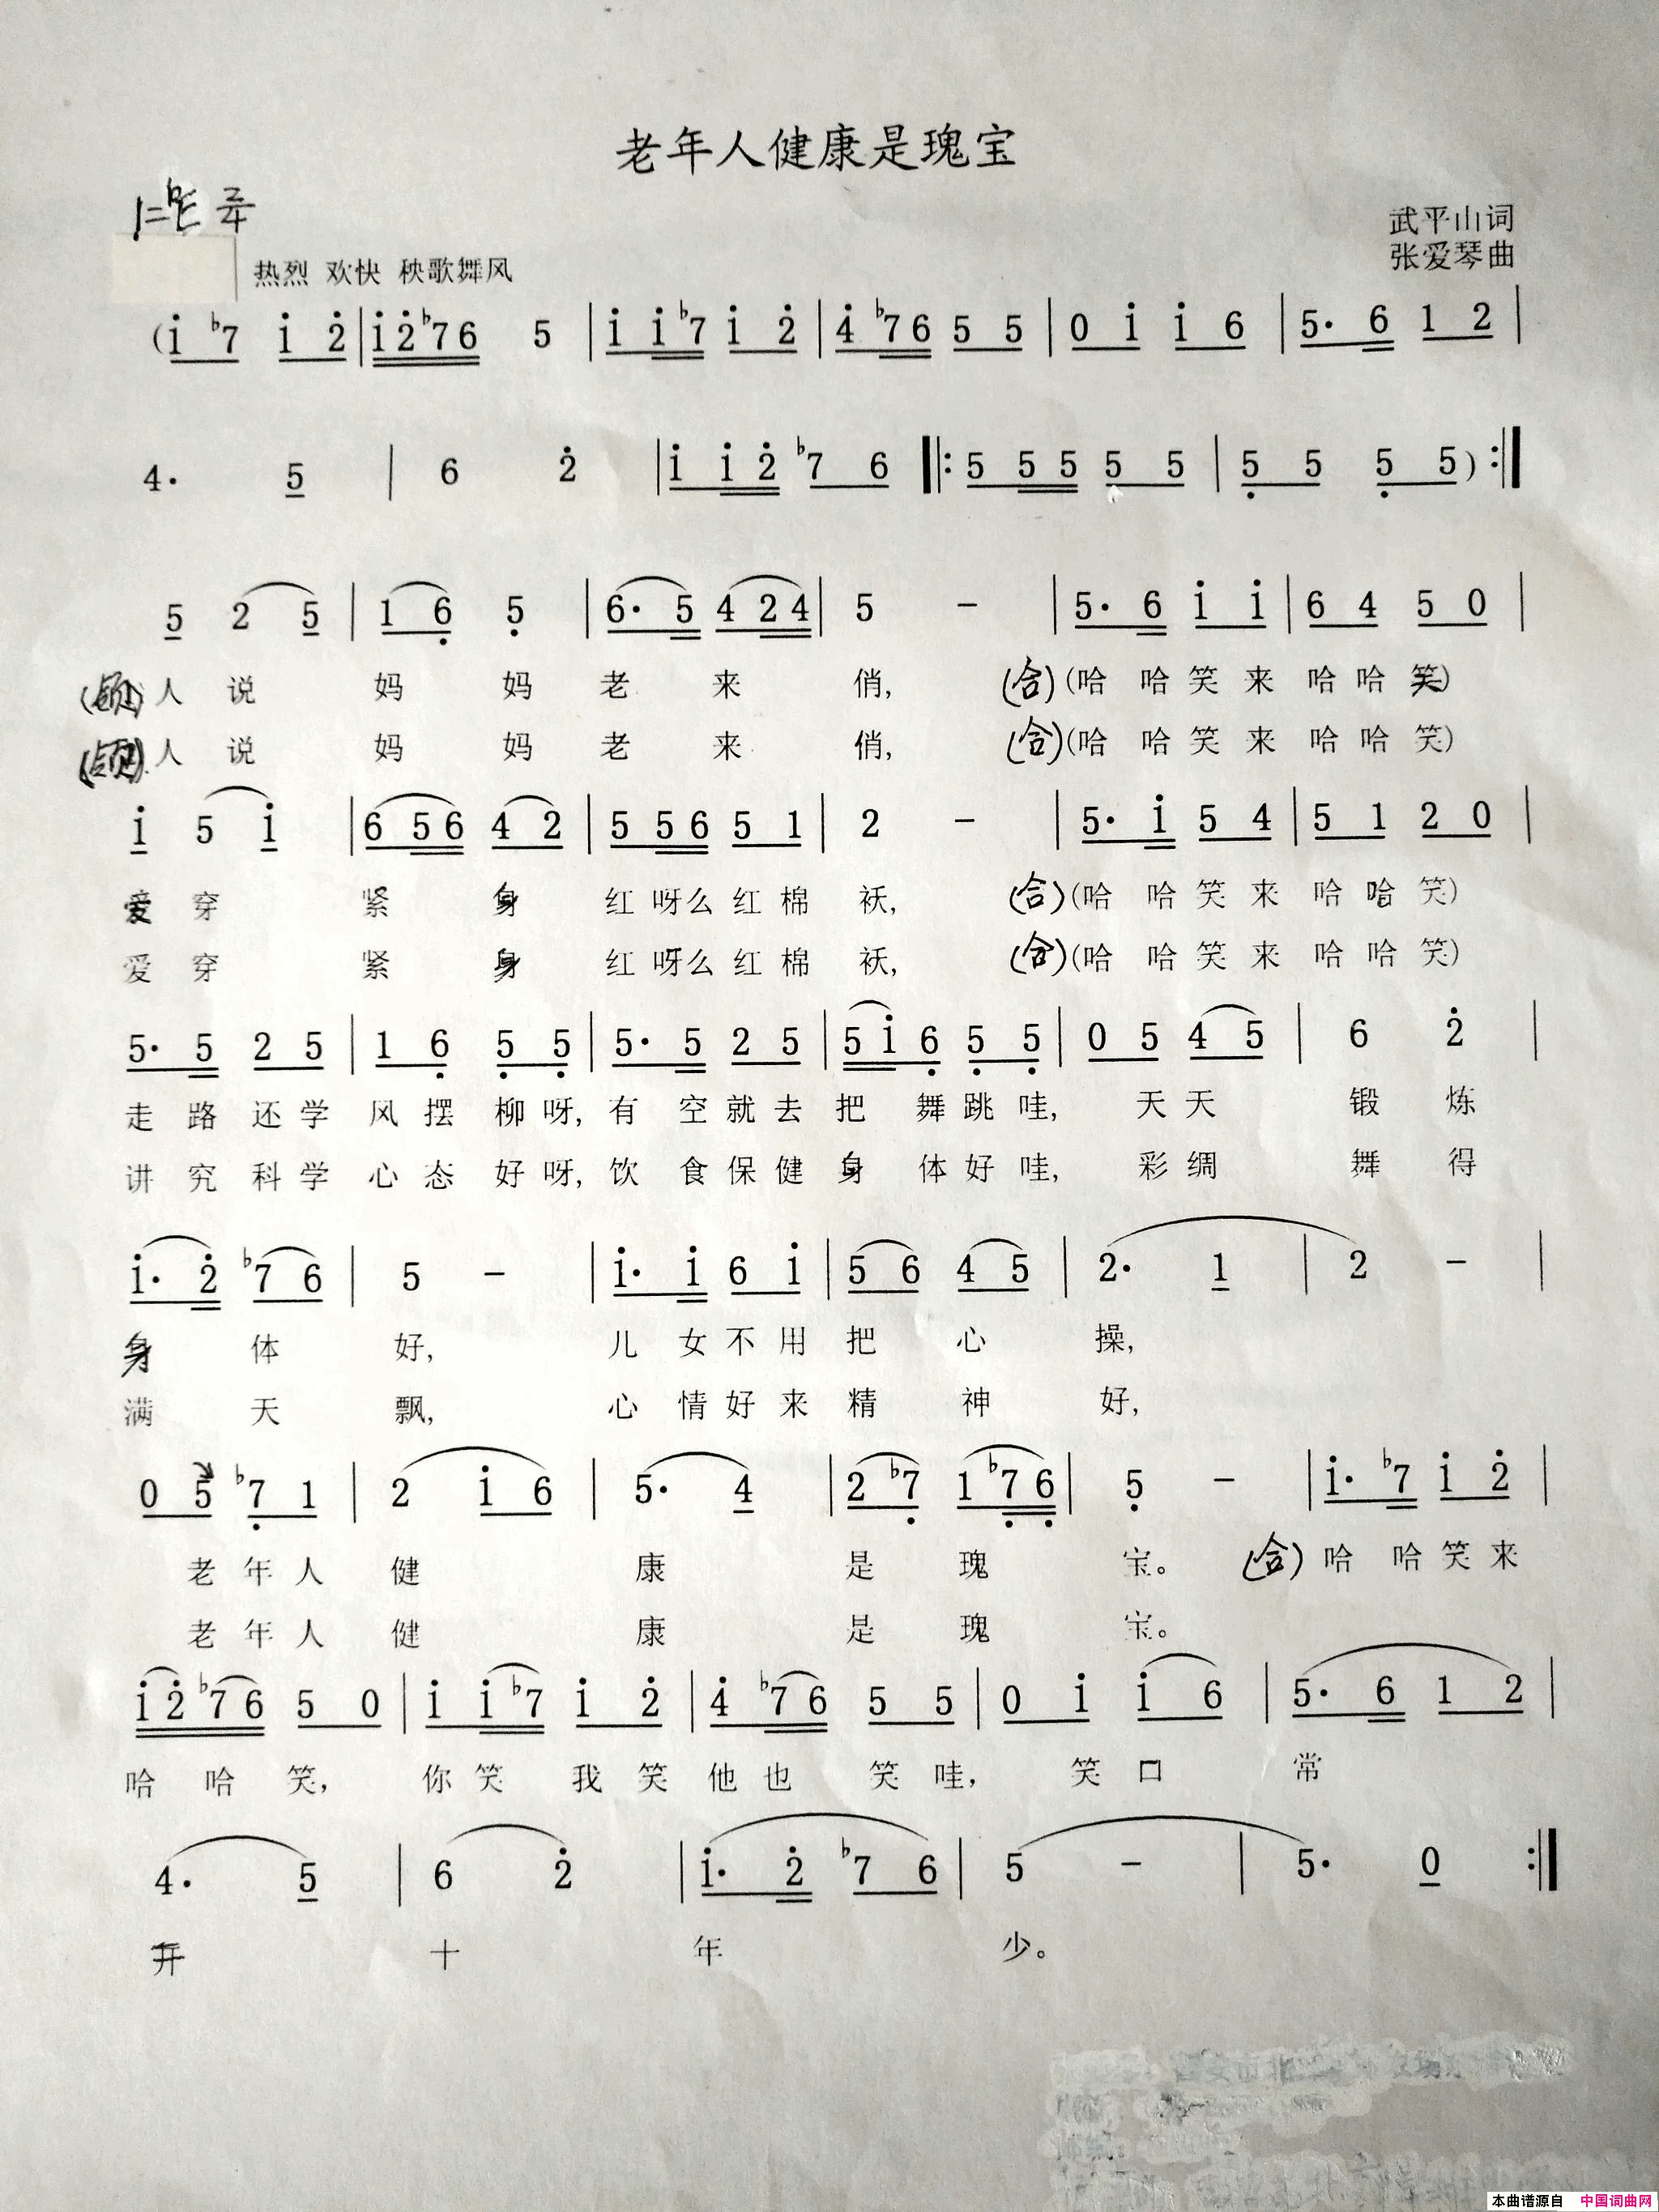 老年人健康是瑰宝
1=♭E 2/4
武平山词
热烈 欢快 秧歌舞风
张爱琴曲
(i ♭7 i 2 | i 2 ♭7 6 5 | i i ♭7 i 2 | 4 ♭7 6 5 5 | 0 i i 6 | 5· 6 1 2 |
4· 5 | 6 2 | i i 2 ♭7 6 ‖: 5 5 5 5 5 | 5 5 5 5) :‖
5 2 5 | 1 6 5 | 6· 5 4 2 4 | 5 - | 5· 6 i i | 6 4 5 0 |
(领) 人 说 妈 妈 老 来 俏, (合) (哈 哈 笑 来 哈 哈 笑)
(领) 人 说 妈 妈 老 来 俏, (合) (哈 哈 笑 来 哈 哈 笑)
i 5 i | 6 5 6 4 2 | 5 5 6 5 1 | 2 - | 5· i 5 4 | 5 1 2 0 |
爱 穿 紧 身 红 呀么 红 棉 袄, (合) (哈 哈 笑 来 哈 哈 笑)
爱 穿 紧 身 红 呀么 红 棉 袄, (合) (哈 哈 笑 来 哈 哈 笑)
5· 5 2 5 | 1 6 5 5 | 5· 5 2 5 | 5 i 6 5 5 | 0 5 4 5 | 6 2 |
走 路 还 学 风 摆 柳 呀, 有 空 就 去 把 舞 跳 哇, 天 天 锻 炼
讲 究 科 学 心 态 好 呀, 饮 食 保 健 身 体 好 哇, 彩 绸 舞 得
i· 2 ♭7 6 | 5 - | i· i 6 i | 5 6 4 5 | 2· 1 | 2 - |
身 体 好, 儿 女 不 用 把 心 操,
满 天 飘, 心 情 好 来 精 神 好,
0 5 ♭7 1 | 2 i 6 | 5· 4 | 2 ♭7 1 ♭7 6 | 5 - | i· ♭7 i 2 |
老 年 人 健 康 是 瑰 宝。 (合) 哈 哈 笑 来
老 年 人 健 康 是 瑰 宝。
i 2 ♭7 6 5 0 | i i ♭7 i 2 | 4 ♭7 6 5 5 | 0 i i 6 | 5· 6 1 2 |
哈 哈 笑, 你 笑 我 笑 他 也 笑 哇, 笑 口 常
4· 5 | 6 2 | i· 2 ♭7 6 | 5 - | 5· 0 :‖
开 十 年 少。
本曲谱源自 中国词曲网